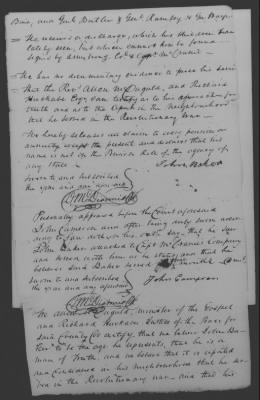 Bur, and Genl Butler & Genl Ramsey &
He received a discharge, which his children
lately seen, but which cannot now be found
signed by Armstrong, Col. & Capt McCranie
He has no documentary evidence to prove his service
That the Revd Allen McDugald, and Richard
Huckabe Esqr can testify as to his character for
truth and as to the report in the neighbourhood
that he served in the Revolutionary War
He hereby releases all claim to every pension or
annuity except the present and declares that his
name is not on the Pension Roll of the agency of
any State
John Baker
Sworn to and Subscribed
the year and day aforesaid
Personally appeared before the Court aforesaid
John Cameron and after being duly sworn
saith on his oath that he saw
John Baker attached to Capt McCranies Company
and served with him as he states, and that he
believes said Baker served
Sworn to and Subscribed
the year and day aforesaid
John Cameron
We Allen McDugald, minister of the Gospel
and Richard Huckabee Justice of the Peace for
said County do certify, that we believe John Ba-
ker to be the age he represents, that he is a
man of truth, and we believe that it is reputed
and considered in his neighbourhood that he ser-
ved in the Revolutionary war and that his